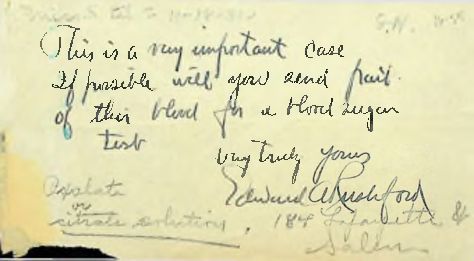 This is a very important case
If possible will you send part
of this blood for a blood sugar
test
Very truly yours
Edward A Rushford
184 Lafayette St
Salem
Oxalate
or
citrate solution